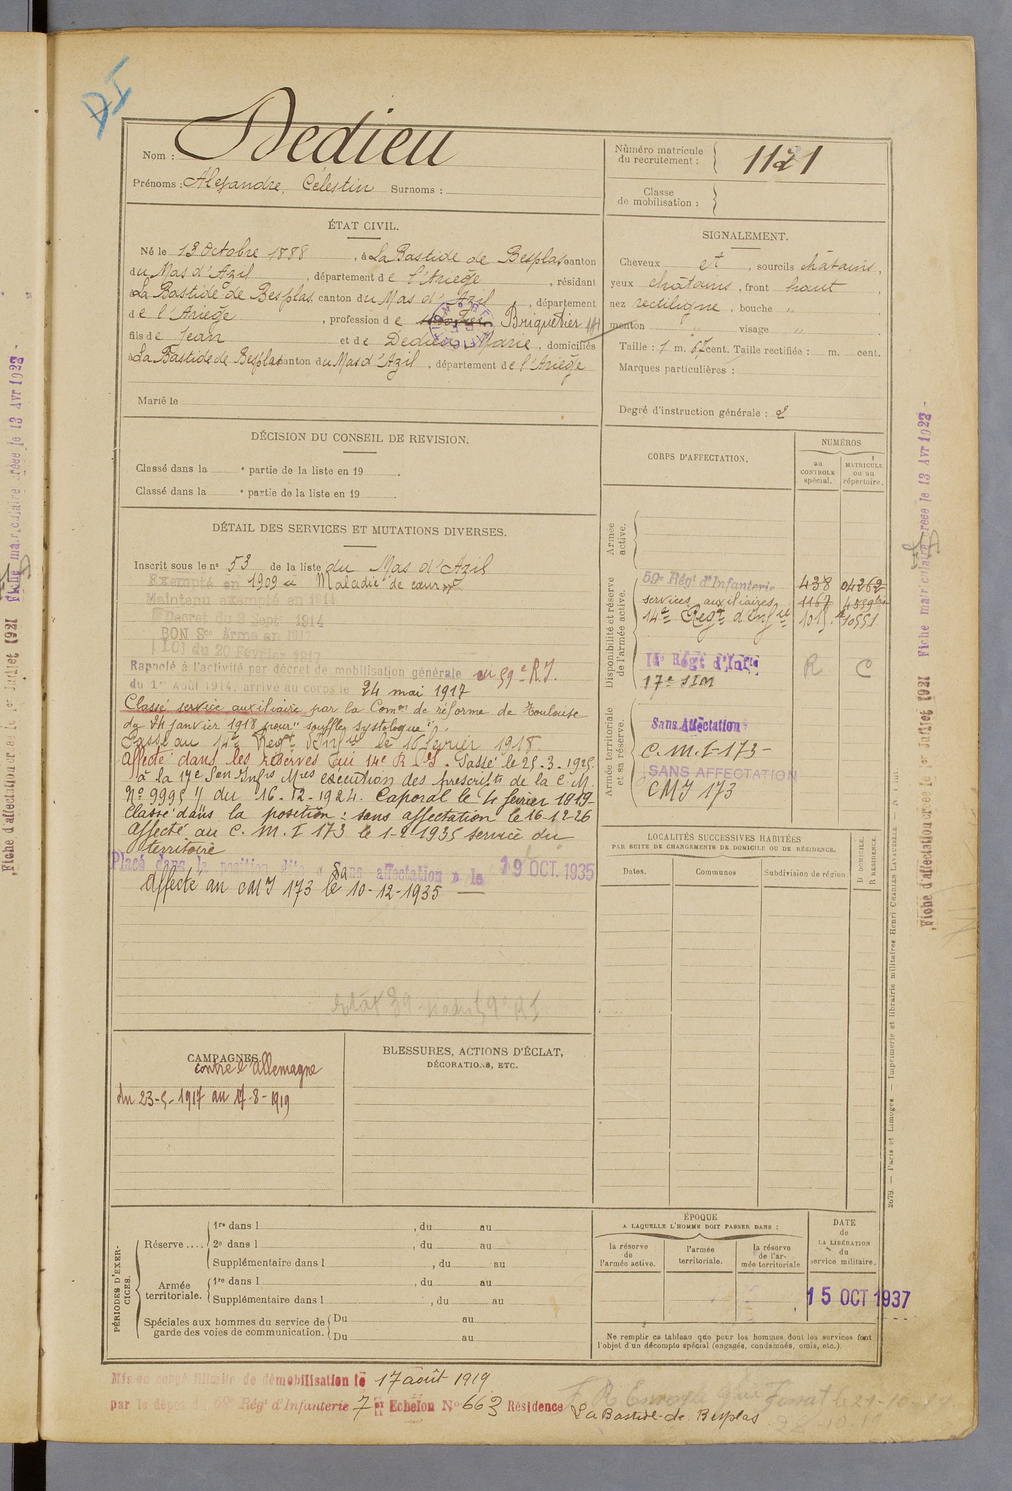 DI
Nom : Dedieu
Prénoms : Alexandre, Célestin Surnoms :
Numéro matricule
du recrutement : 1121
Classe
de mobilisation :
ÉTAT CIVIL.
Né le 13 Octobre 1888, à La Bastide de Besplas canton
du Mas d'Azil, département de l'Ariège, résidant
à La Bastide de Besplas canton du Mas d'Azil, département
de l'Ariège, profession de Briquetier
fils de Jean et de Dedieu Marie, domiciliés
à La Bastide de Besplas canton du Mas d'Azil, département de l'Ariège
Marié le
SIGNALEMENT.
Cheveux et, sourcils châtains,
yeux châtains, front haut
nez rectiligne, bouche "
menton " visage "
Taille : 1 m. 67 cent. Taille rectifiée : m. cent.
Marques particulières :
Degré d'instruction générale : 2
DÉCISION DU CONSEIL DE REVISION.
Classé dans la e partie de la liste en 19 .
Classé dans la e partie de la liste en 19 .
DÉTAIL DES SERVICES ET MUTATIONS DIVERSES.
Inscrit sous le n° 53 de la liste du Mas d'Azil
Exempté en 1909 Maladie de cœur
Maintenu exempté en 1914
Décret du 9 Sept 1914
BON Sce Armé en 1917
[LOI du 20 Février 1917
Rappelé à l'activité par décret de mobilisation générale au 59e R.I.
du 1er Août 1914, arrivé au corps le 24 mai 1917
Classé service auxiliaire par la Comon de réforme de Toulouse
du 24 janvier 1918 pour "souffle systolique"
Passé au 14e Regt d'Infie le 16 février 1918.
Affecté dans les réserves au 14e R.I. Passé le 25-3-1925
à la 17e Son Infrs Mres exécution des prescripts de la C.M.
N° 9995 du 16-12-1924. Caporal le 4 février 1919
Classé dans la position : sans affectation le 16-12-26
Affecté au C.M.I 173 le 1-2 1935 service du
territoire
Placé dans la position dite « Sans affectation » le 19 OCT. 1935
Affecté au CMI 173 le 10-12-1935
CORPS D'AFFECTATION.
NUMÉROS
au
CONTRÔLE
spécial.
MATRICULE
ou au
répertoire.
Armée
active.
Disponibilité et réserve
de l'armée active.
59e Régt d'Infanterie 438 04262
services auxiliaires 1167
14e Regt d'Infie 1015 10551
14e Régt d'Infie R C
17e SIM
Armée territoriale
et sa réserve.
Sans Affectation
C.M.I-173-
SANS AFFECTATION
CMI 173
LOCALITÉS SUCCESSIVES HABITÉES
PAR SUITE DE CHANGEMENTS DE DOMICILE OU DE RÉSIDENCE.
Dates. Communes Subdivision de région
D DOMICILE.
R RÉSIDENCE.
CAMPAGNES.
contre l'Allemagne
du 23-5-1917 au 17-8-1919
BLESSURES, ACTIONS D'ÉCLAT,
DÉCORATIONS, ETC.
PÉRIODES D'EXER-
CICES.
Réserve .... 1re dans l , du au
2e dans l , du au
Supplémentaire dans l , du au
Armée
territoriale. 1re dans l , du au
Supplémentaire dans l , du au
Spéciales aux hommes du service de
garde des voies de communication. Du au
Du au
ÉPOQUE
A LAQUELLE L'HOMME DOIT PASSER DANS :
la réserve
de
l'armée active.
l'armée
territoriale.
la réserve
de l'ar-
mée territoriale
DATE
de
LA LIBÉRATION
du
service militaire.
15 OCT 1937
Ne remplir ce tableau que pour les hommes dont les services font
l'objet d'un décompte spécial (engagés, condamnés, omis, etc.).
Mis en congé illimité de démobilisation le 17 août 1919
par le dépôt du 59e Régt d'Infanterie 7e Echelon N° 663 Résidence La Bastide-de-Besplas
Fiche matriculaire créée le 13 Avr 1923 -
Fiche d'affectation créée le 1er Juillet 1921
2679. — Paris et Limoges. — Imprimerie et librairie militaires Henri CHARLES-LAVAUZELLE.